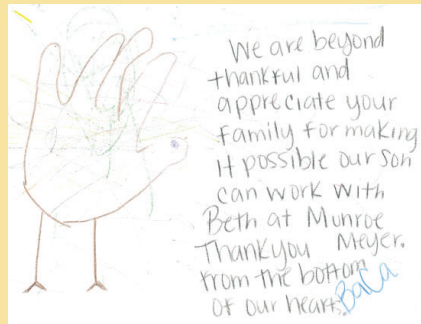 We are beyond
thankful and
appreciate your
family for making
it possible our son
can work with
Beth at Munroe
Thankyou Meyer.
from the bottom
of our heart.
BaCa